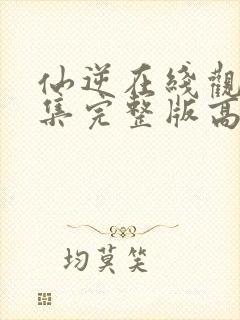 仙逆在綫觀
集完整版高
均莫笑